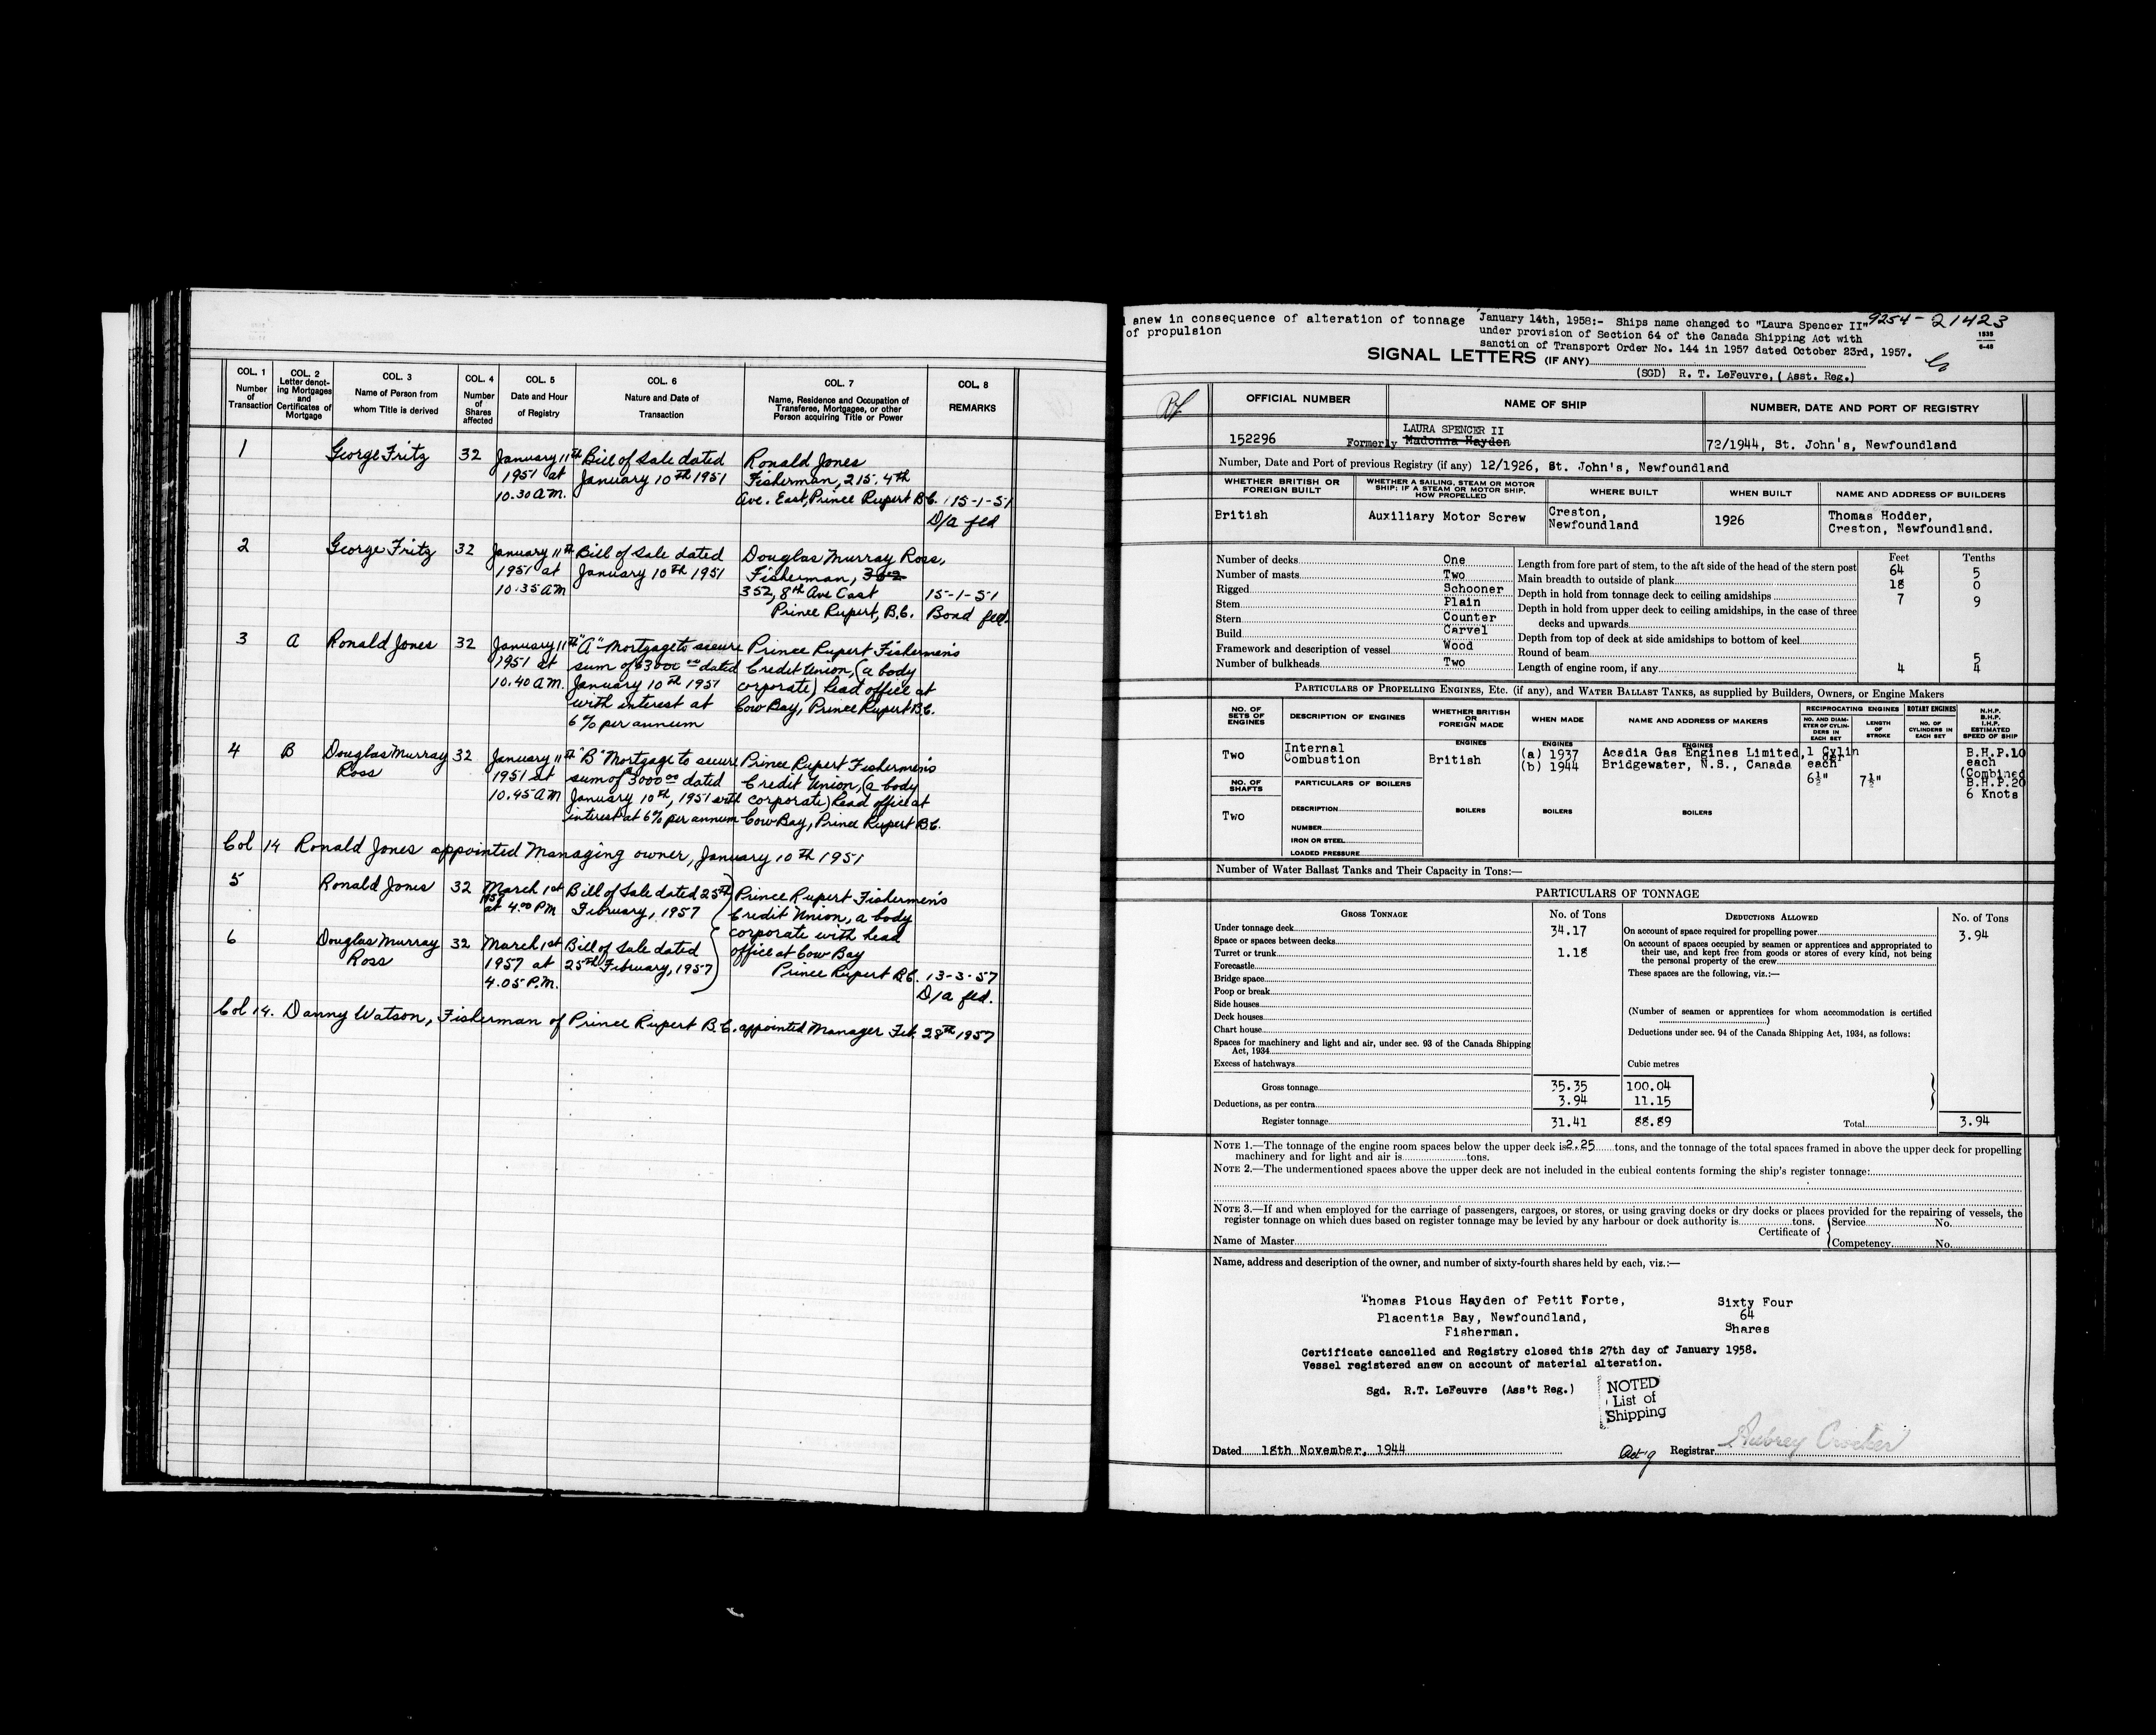 COL. 1
Number
of
Transaction
COL. 2
Letter denot-
ing Mortgages
and
Certificates of
Mortgage
COL. 3
Name of Person from
whom Title is derived
COL. 4
Number
of
Shares
affected
COL. 5
Date and Hour
of Registry
COL. 6
Nature and Date of
Transaction
COL. 7
Name, Residence and Occupation of
Transferee, Mortgagee, or other
Person acquiring Title or Power
COL. 8
REMARKS
1 George Fritz 32 January 11th Bill of Sale dated Ronald Jones
1951 at January 10th 1951 Fisherman, 215. 4th
10.30 A.M. Ave. East, Prince Rupert B.C. 15-1-51
D/a fld
2 George Fritz 32 January 11th Bill of Sale dated Douglas Murray Ross,
1951 at January 10th 1951 Fisherman, 362
10.35 AM 352, 8th Ave East 15-1-51
Prince Rupert, B.C. Bond fld.
3 A Ronald Jones 32 January 11th "A" Mortgage to secure Prince Rupert Fishermen's
1951 at sum of $3000 00 dated Credit Union, (a body
10.40 A.M. January 10th 1951 corporate) head office at
with interest at Cow Bay, Prince Rupert B.C.
6% per annum
4 B Douglas Murray 32 January 11th "B" Mortgage to secure Prince Rupert Fishermen's
Ross 1951 at sum of $3000 00 dated Credit Union, (a body
10.45 AM January 10th, 1951 with corporate) head office at
interest at 6% per annum Cow Bay, Prince Rupert B.C.
Col 14 Ronald Jones appointed Managing owner, January 10th 1951
5 Ronald Jones 32 March 1st Bill of Sale dated 25th Prince Rupert Fishermen's
1957 at 4.00 PM February, 1957 Credit Union, a body
corporate with head
6 Douglas Murray 32 March 1st Bill of Sale dated office at Cow Bay
Ross 1957 at 25th February, 1957 Prince Rupert B.C. 13-3-57
4.05 P.M. D/a fld.
Col 14. Danny Watson, Fisherman of Prince Rupert B.C. appointed Manager Feb. 28th 1957
anew in consequence of alteration of tonnage
of propulsion
January 14th, 1958:- Ships name changed to "Laura Spencer II"
under provision of Section 64 of the Canada Shipping Act with
sanction of Transport Order No. 144 in 1957 dated October 23rd, 1957.
9254-21423
1835
6-48
SIGNAL LETTERS (IF ANY)
(SGD) R. T. LeFeuvre, (Asst. Reg.)
OFFICIAL NUMBER NAME OF SHIP NUMBER, DATE AND PORT OF REGISTRY
LAURA SPENCER II
152296 Formerly Madonna Hayden 72/1944, St. John's, Newfoundland
Number, Date and Port of previous Registry (if any) 12/1926, St. John's, Newfoundland
WHETHER BRITISH OR
FOREIGN BUILT
WHETHER A SAILING, STEAM OR MOTOR
SHIP; IF A STEAM OR MOTOR SHIP,
HOW PROPELLED
WHERE BUILT
WHEN BUILT
NAME AND ADDRESS OF BUILDERS
British Auxiliary Motor Screw Creston, 1926 Thomas Hodder,
Newfoundland Creston, Newfoundland.
Feet Tenths
Number of decks One
Number of masts Two
Rigged Schooner
Stem Plain
Stern Counter
Build Carvel
Framework and description of vessel Wood
Number of bulkheads Two
Length from fore part of stem, to the aft side of the head of the stern post 64 5
Main breadth to outside of plank 18 0
Depth in hold from tonnage deck to ceiling amidships 7 9
Depth in hold from upper deck to ceiling amidships, in the case of three
decks and upwards
Depth from top of deck at side amidships to bottom of keel
Round of beam 5
Length of engine room, if any 4 4
PARTICULARS OF PROPELLING ENGINES, ETC. (if any), and WATER BALLAST TANKS, as supplied by Builders, Owners, or Engine Makers
NO. OF
SETS OF
ENGINES
DESCRIPTION OF ENGINES
WHETHER BRITISH
OR
FOREIGN MADE
WHEN MADE
NAME AND ADDRESS OF MAKERS
RECIPROCATING ENGINES
NO. AND DIAM-
ETER OF CYLIN-
DERS IN
EACH SET
LENGTH
OF
STROKE
ROTARY ENGINES
NO. OF
CYLINDERS IN
EACH SET
N.H.P.
B.H.P.
I.H.P.
ESTIMATED
SPEED OF SHIP
ENGINES ENGINES ENGINES
Two Internal
Combustion
British
(a) 1937
(b) 1944
Acadia Gas Engines Limited,
Bridgewater, N.S., Canada
1 Cylin
der
each
6½" 7½"
B.H.P.10
each
(Combined
B.H.P.20
6 Knots
NO. OF
SHAFTS
PARTICULARS OF BOILERS
Two
DESCRIPTION
NUMBER
IRON OR STEEL
LOADED PRESSURE
BOILERS BOILERS BOILERS
Number of Water Ballast Tanks and Their Capacity in Tons:—
PARTICULARS OF TONNAGE
GROSS TONNAGE No. of Tons DEDUCTIONS ALLOWED No. of Tons
Under tonnage deck 34.17
Space or spaces between decks
Turret or trunk 1.18
Forecastle
Bridge space
Poop or break
Side houses
Deck houses
Chart house
Spaces for machinery and light and air, under sec. 93 of the Canada Shipping
Act, 1934
Excess of hatchways
On account of space required for propelling power 3.94
On account of spaces occupied by seamen or apprentices and appropriated to
their use, and kept free from goods or stores of every kind, not being
the personal property of the crew
These spaces are the following, viz.:—
(Number of seamen or apprentices for whom accommodation is certified
)
Deductions under sec. 94 of the Canada Shipping Act, 1934, as follows:
Cubic metres
Gross tonnage 35.35 100.04
Deductions, as per contra 3.94 11.15
Register tonnage 31.41 88.89 Total 3.94
NOTE 1.—The tonnage of the engine room spaces below the upper deck is 2.25 tons, and the tonnage of the total spaces framed in above the upper deck for propelling
machinery and for light and air is tons.
NOTE 2.—The undermentioned spaces above the upper deck are not included in the cubical contents forming the ship's register tonnage:
NOTE 3.—If and when employed for the carriage of passengers, cargoes, or stores, or using graving docks or dry docks or places provided for the repairing of vessels, the
register tonnage on which dues based on register tonnage may be levied by any harbour or dock authority is tons.
Name of Master Certificate of Service No.
Competency No.
Name, address and description of the owner, and number of sixty-fourth shares held by each, viz.:—
Thomas Pious Hayden of Petit Forte, Sixty Four
Placentia Bay, Newfoundland, 64
Fisherman. Shares
Certificate cancelled and Registry closed this 27th day of January 1958.
Vessel registered anew on account of material alteration.
Sgd. R.T. LeFeuvre (Ass't Reg.)
NOTED
List of
Shipping
Dated 18th November, 1944 Act'g Registrar Aubrey Crocker